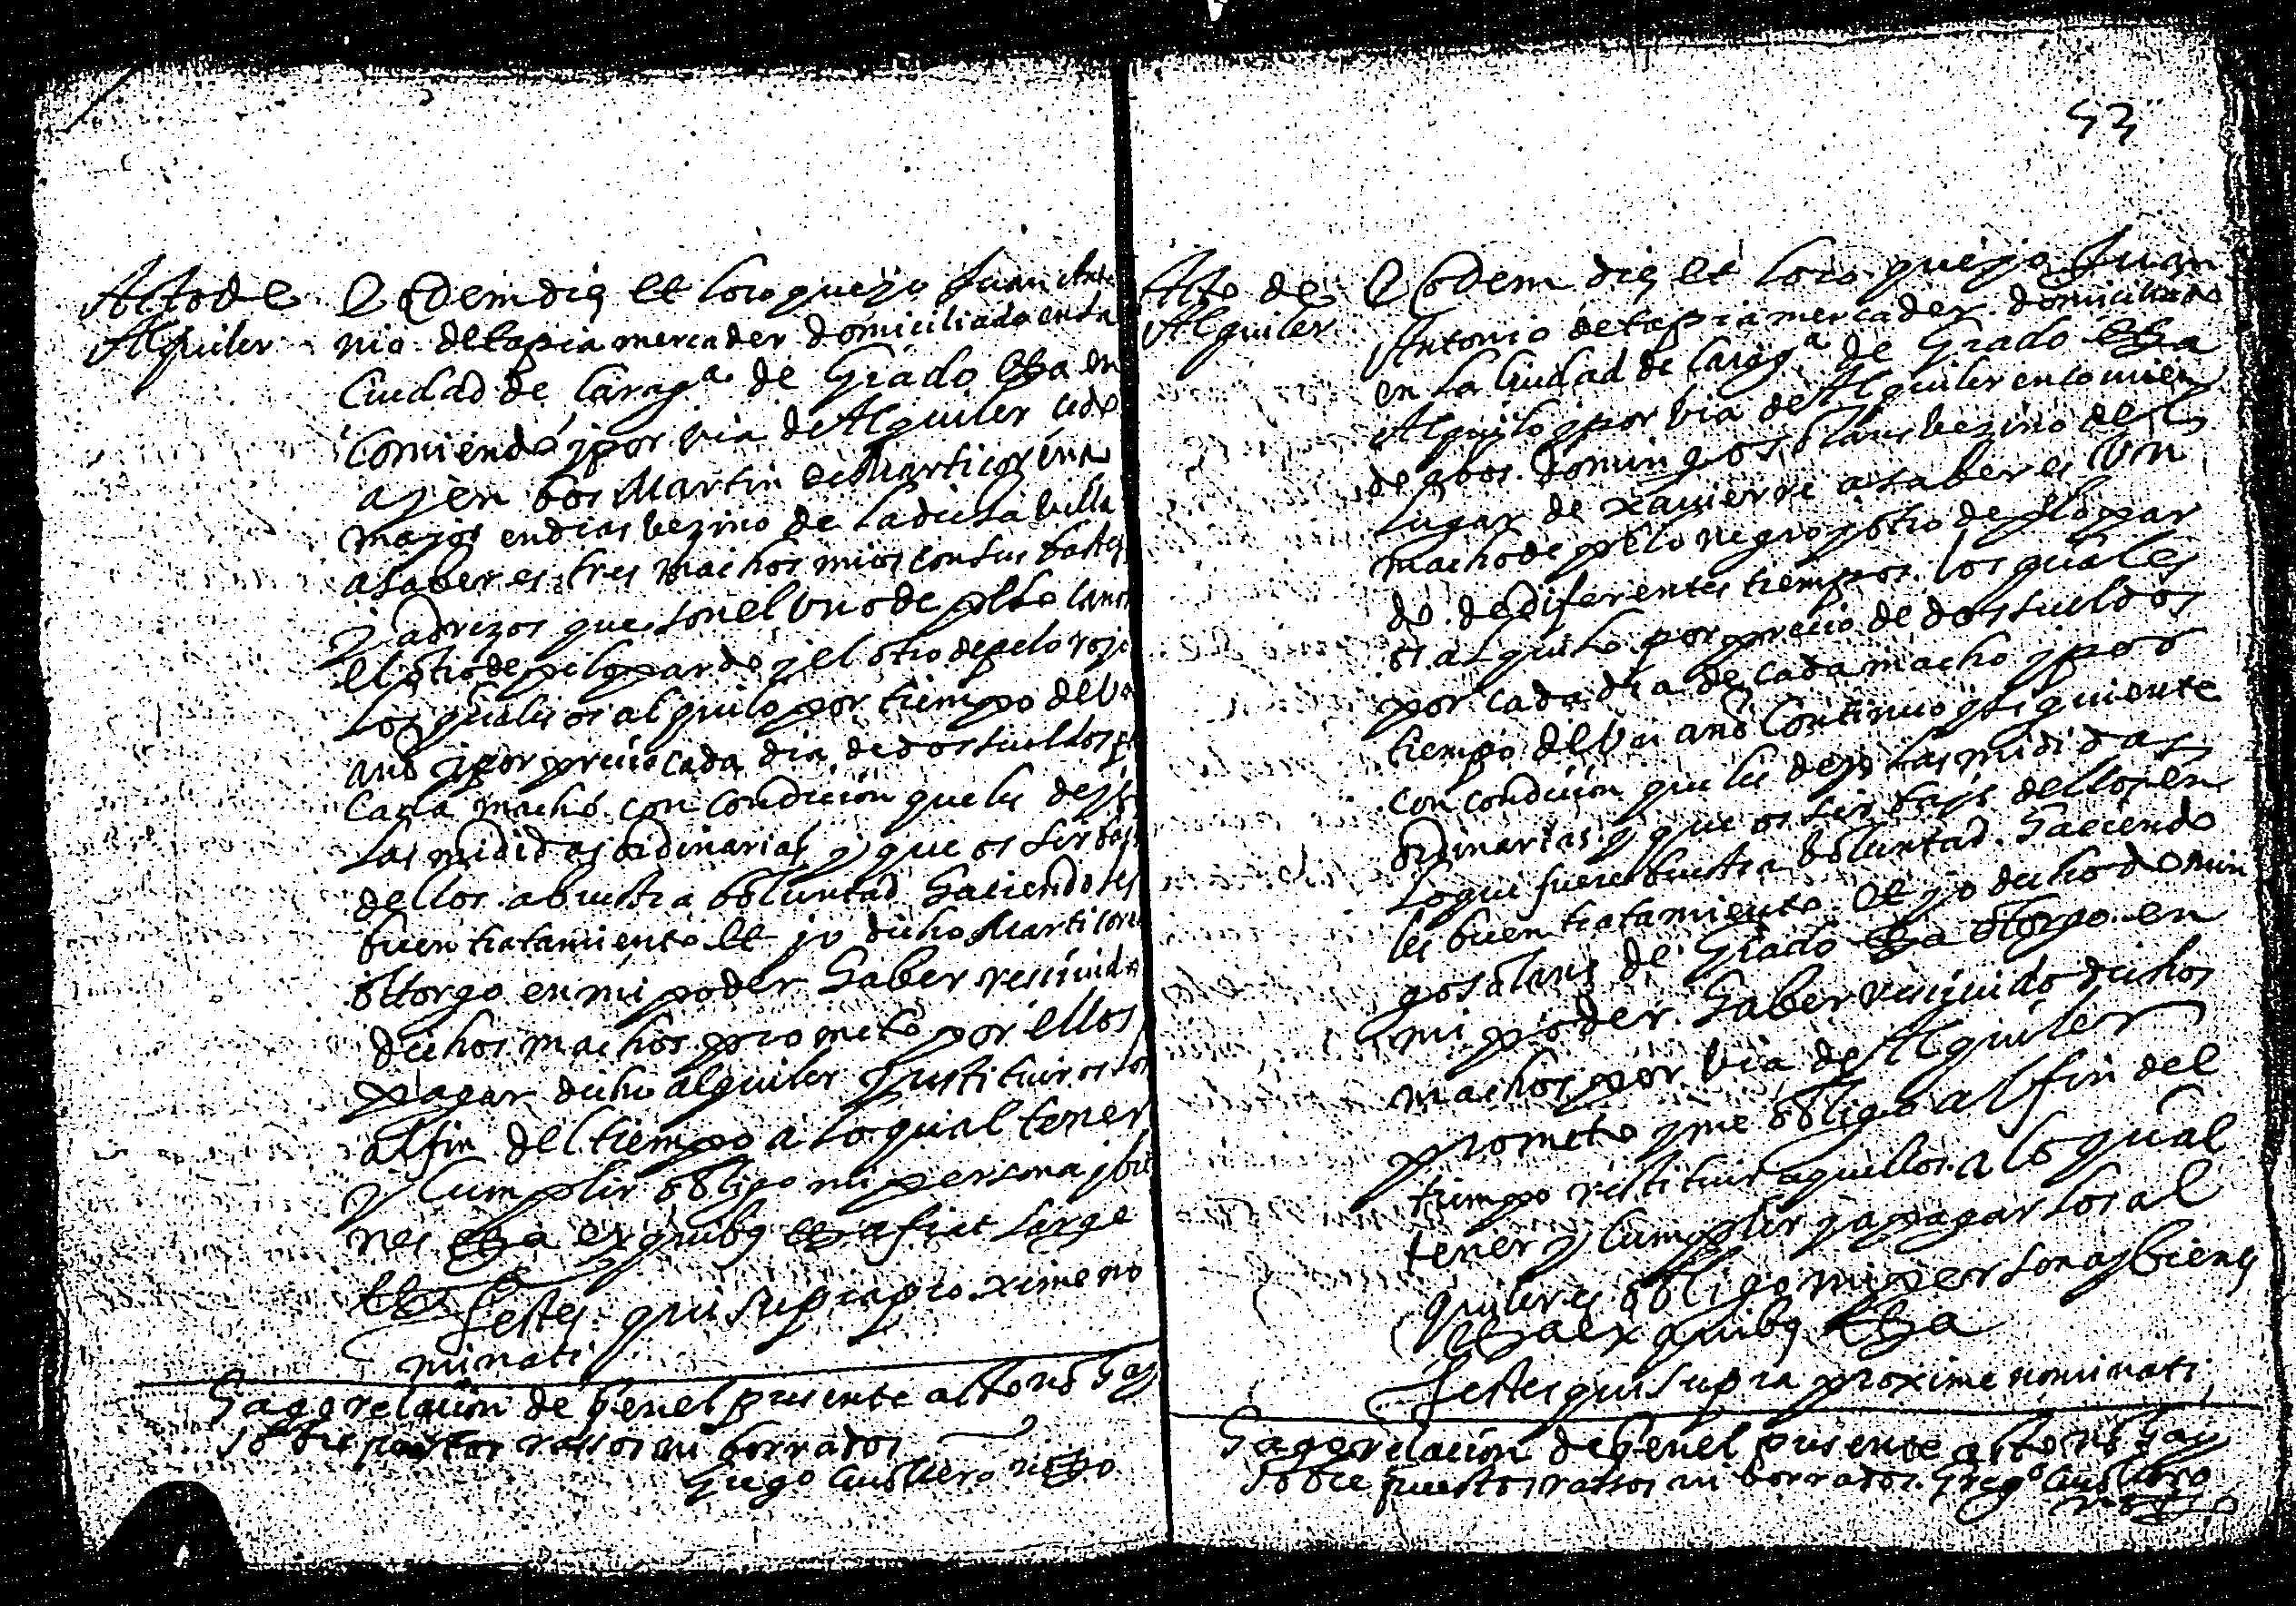 Acto de
Alquiler
Eodem die et loco que yo Juan Anto
nio de tapia mercader domiciliado en la
Ciudad de Carag.ª de Grado etza en
comiendo y por via de Alquiler cedo
a y en bos Martin de Marticorena
mayor en dias bezino de la dicha villa
a saber es tres machos mios con sus bastes
y adrezos que son el uno de pelo
el otro de pelo pardo y el otro de pelo rojo
los quales os alquilo por tiempo de un
año y por precio cada dia de dos sueldos por
cada macho con condicion que les deys
las medidas ordinarias y que os sirbays
dellos a buestra boluntad Haciendoles
buen tratamiento et yo dicho Marticore
ottorgo en mi poder Haber reciuido
dichos machos prometo por ellos
pagar dicho alquiler y restituiros los
al fin del tiempo a lo qual tener
y Cumplir obligo mi persona y bie
nes etza ex quibus etza fiat large
etza
Testes qui supra proxime no
minati
Hago relacion de q en el presente acto no hay
sobre puestos rassos ni borrados
not.º
53
Acto de
Alquiler
Eodem die et loco que yo Juan
Antonio de tapia mercader domiciliado
en la Ciudad de Carag.ª de Grado etza
Alquilo y por via de Alquiler encomien
do a bos Domingo Solans bezino del
lugar de Xavierre a saber es Un
macho de pelo negro y otro de pelo par
do de diferentes tiempos los quales
os alquilo por precio de dos sueldos
por cada dia de cada macho y por
tiempo de Un año Continuo y siguiente
con condicion que les deys las medidas
ordinarias y que os sirbays dellos en
lo que fuere buestra boluntad Haciendo
les buen tratamiento et yo dicho domin
go solans de Grado etza otorgo en
mi poder Haber reciuido dichos
machos por via de Alquiler
prometo y me obligo al fin del
tiempo restituir aquellos a lo qual
tener y Cumplir y a pagar los al
quileres obligo mi persona y bienes
etza ex quibus etza
Testes qui supra proxime nominati
Hago relacion de q en el presente acto no hay
sobre puestos rassos ni borrados
not.º